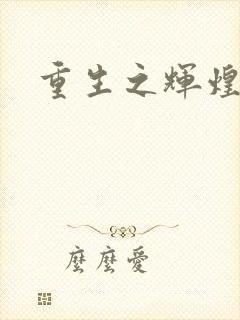 重生之輝煌
麼麼愛